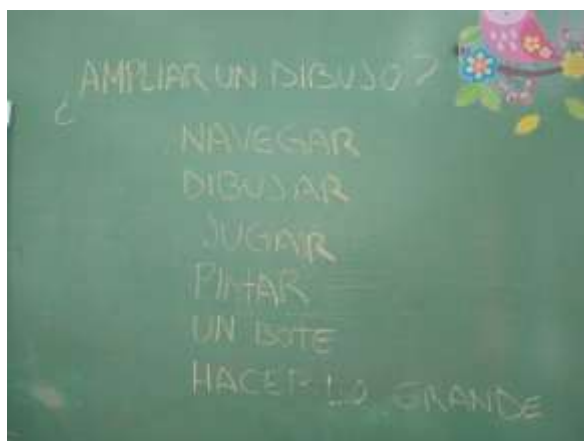 ¿AMPLIAR UN DIBUJO?
NAVEGAR
DIBUJAR
JUGAR
PINTAR
UN BOTE
HACERLO GRANDE